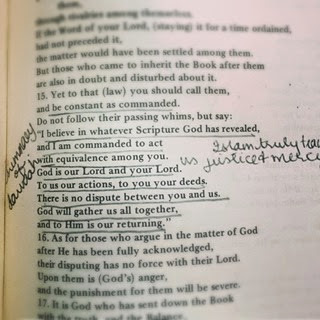 them,
through rivalries among themselves.
If the Word of your Lord, (staying) it for a time ordained,
had not preceded it,
the matter would have been settled among them.
But those who came to inherit the Book after them
are also in doubt and disturbed about it.
15. Yet to that (law) you should call them,
and be constant as commanded.
Do not follow their passing whims, but say:
"I believe in whatever Scripture God has revealed,
and I am commanded to act
with equivalence among you.
God is our Lord and your Lord.
To us our actions, to you your deeds.
There is no dispute between you and us.
God will gather us all together,
and to Him is our returning."
16. As for those who argue in the matter of God
after He has been fully acknowledged,
their disputing has no force with their Lord.
Upon them is (God's) anger,
and the punishment for them will be severe.
17. It is God who has sent down the Book
with the truth, and the Balance.
Islam truly
us justice & mercy
of